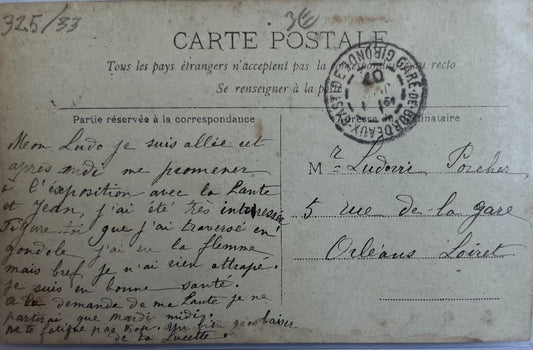 325/33
3€
CARTE POSTALE
Tous les pays étrangers n'acceptent pas la au recto
Se renseigner à la
Partie réservée à la correspondance
Adresse du destinataire
GARE-DE-BORDEAUX-BASTIDE GIRONDE
07
Mon Ludo je suis allée cet
après midi me promener
à l'exposition avec la Tante
et Jean, j'ai été très intéressée
Figure toi que j'ai traversé en
gondole j'ai eu la flemme
mais bref je n'ai rien attrapé.
je suis en bonne santé.
A la demande de ma Tante je ne
partirai que mardi midi.
ne te fatigue pas trop. un bien gros baiser
de ta Lucette.
Mr Ludovic Porcher
5 rue de la gare
Orléans Loiret